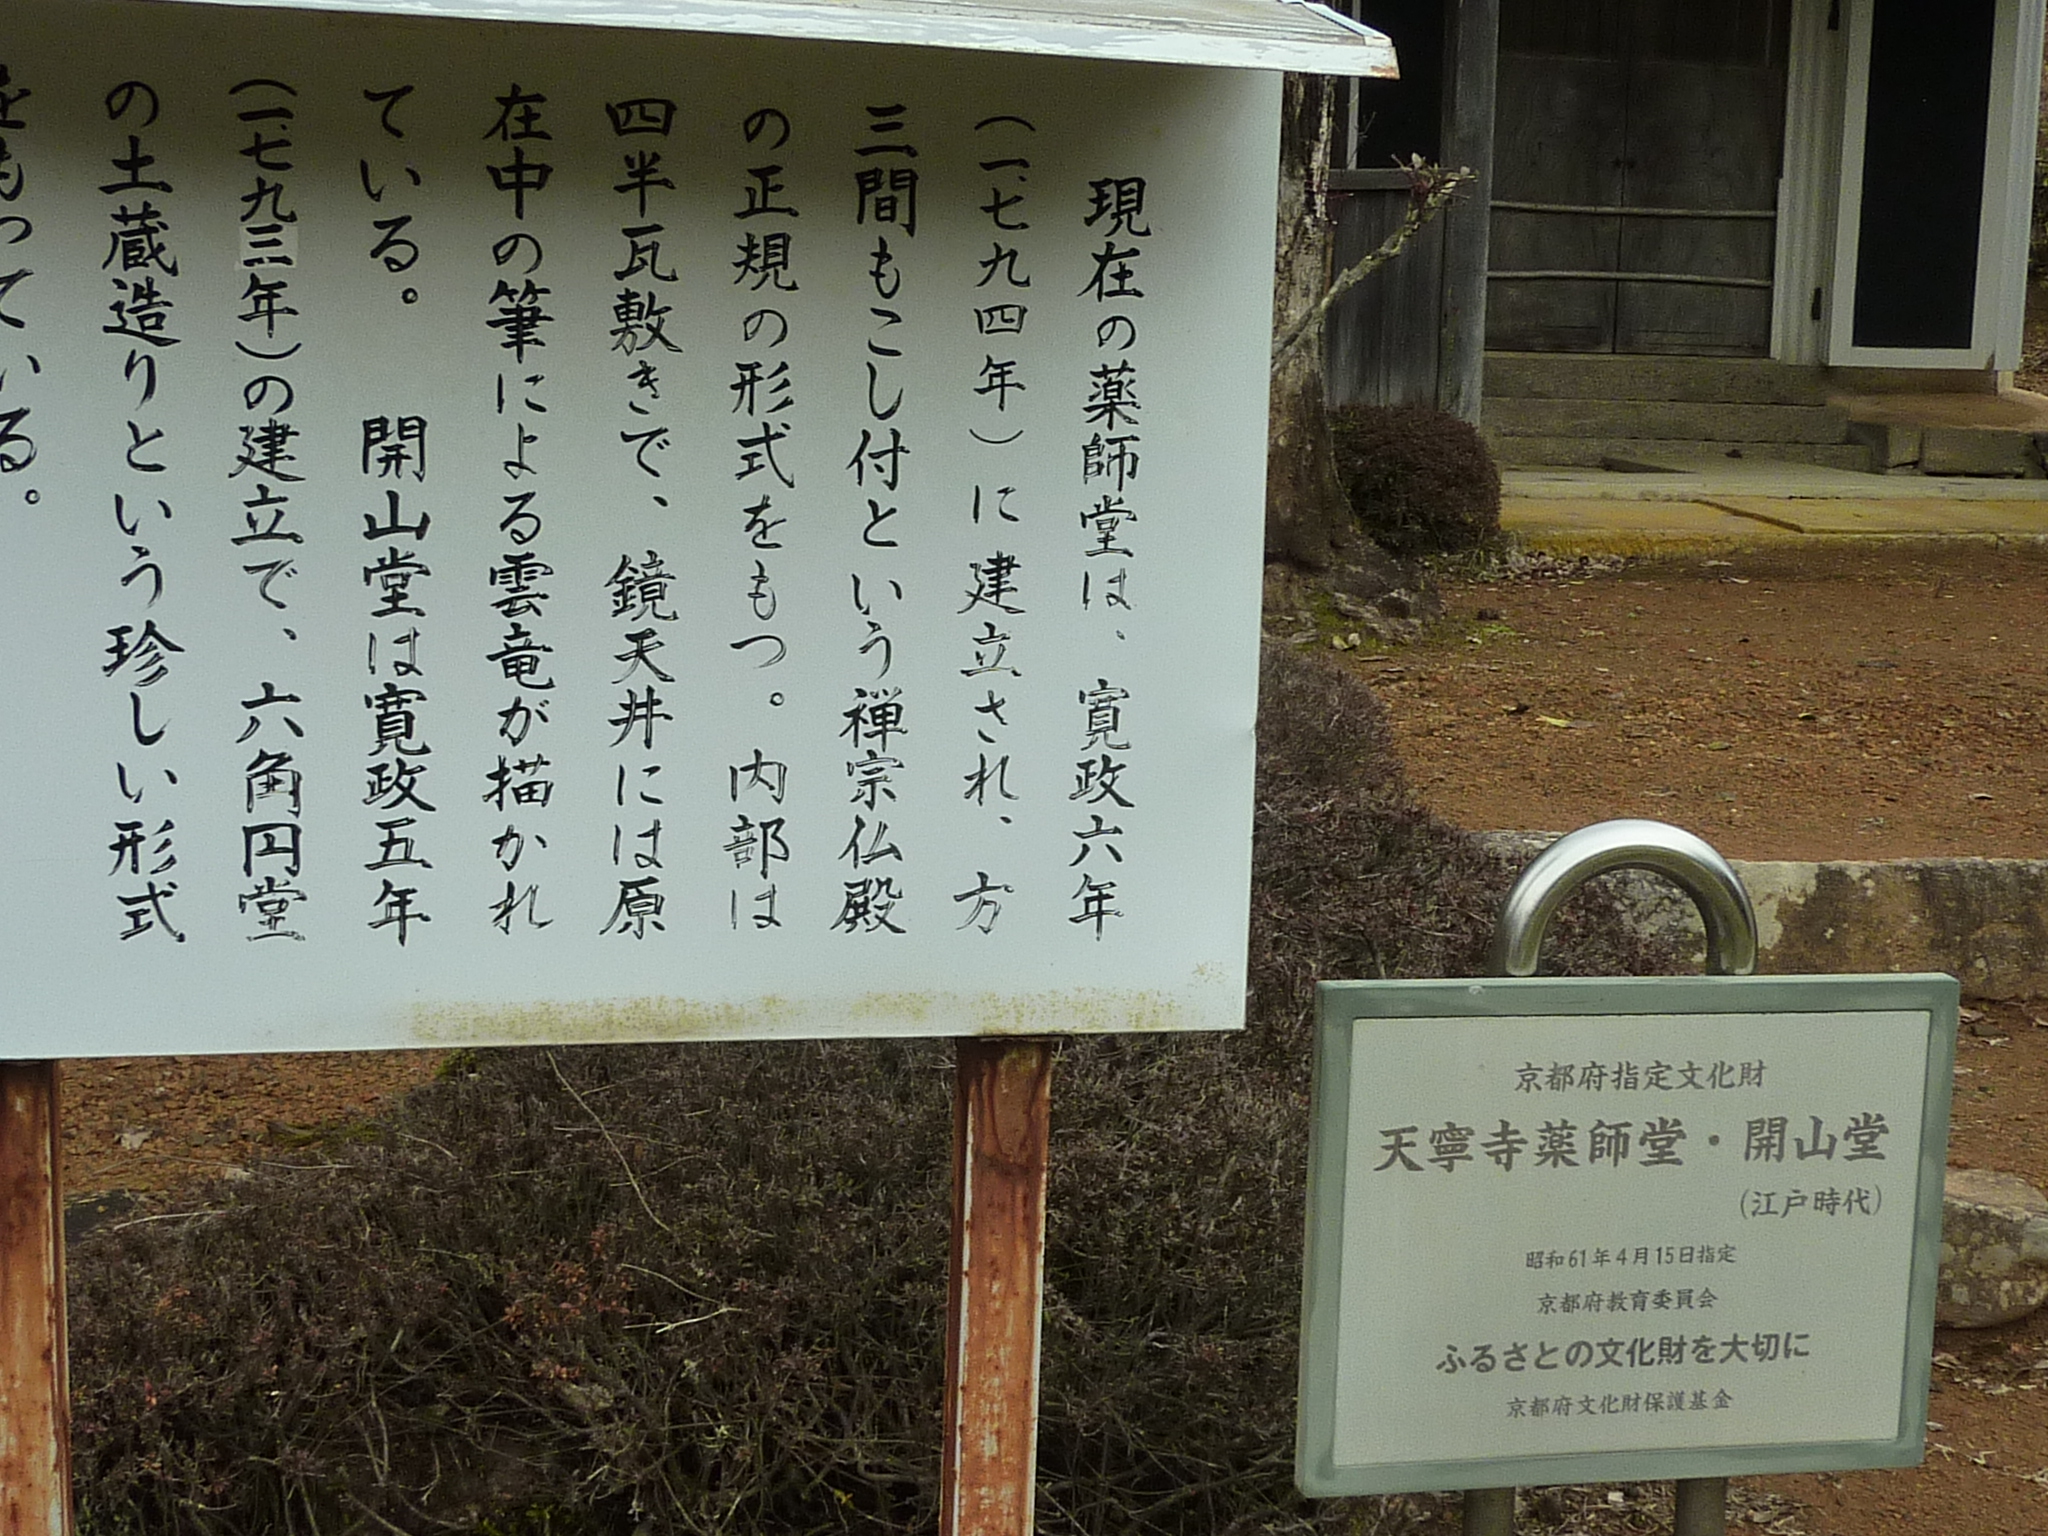 現在の薬師堂は、寛政六年
(一、七九四年)に建立され、方
三間もこし付という禅宗仏殿
の正規の形式をもつ。内部は
四半瓦敷きで、鏡天井には原
在中の筆による雲竜が描かれ
ている。　開山堂は寛政五年
(一、七九三年)の建立で、六角円堂
の土蔵造りという珍しい形式
をもっている。
京都府指定文化財
天寧寺薬師堂・開山堂
(江戸時代)
昭和61年4月15日指定
京都府教育委員会
ふるさとの文化財を大切に
京都府文化財保護基金